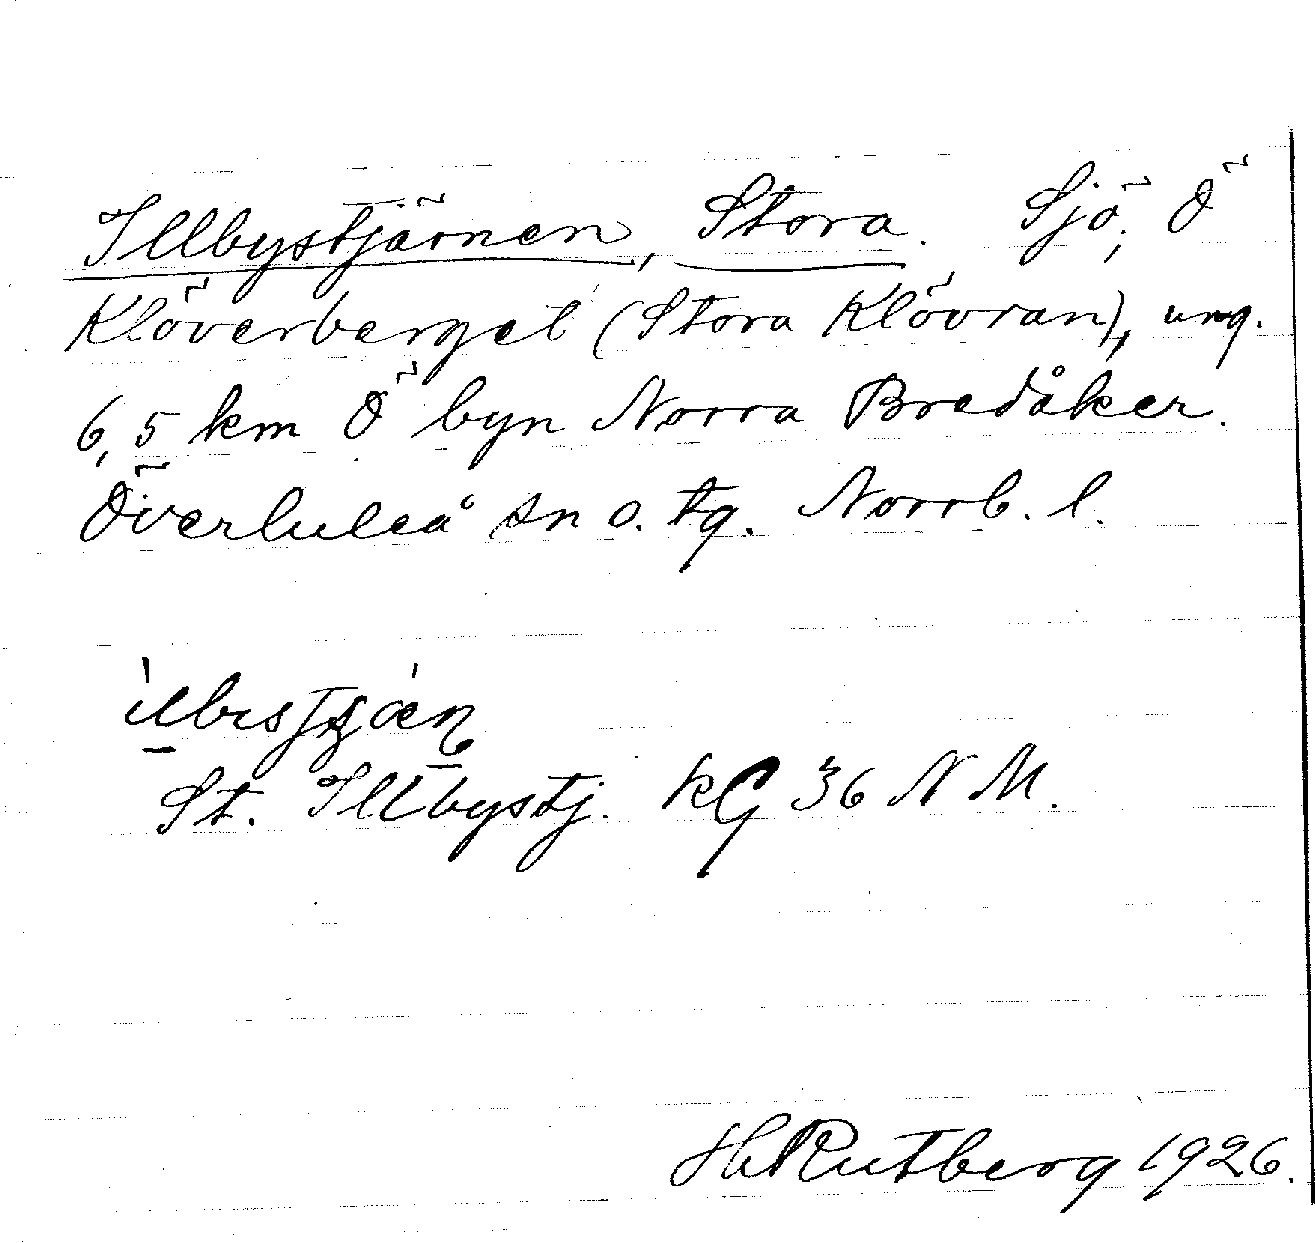 Illbystjärnen, Stora. Sjö, Ö
Klöverberget (Stora Klövran), ung.
6,5 km Ö byn Norra Bredåker.
Överluleå sn o. tg. Norrb. l.
St. Illbystj. KG 36 N M.
H Rutberg 1926.